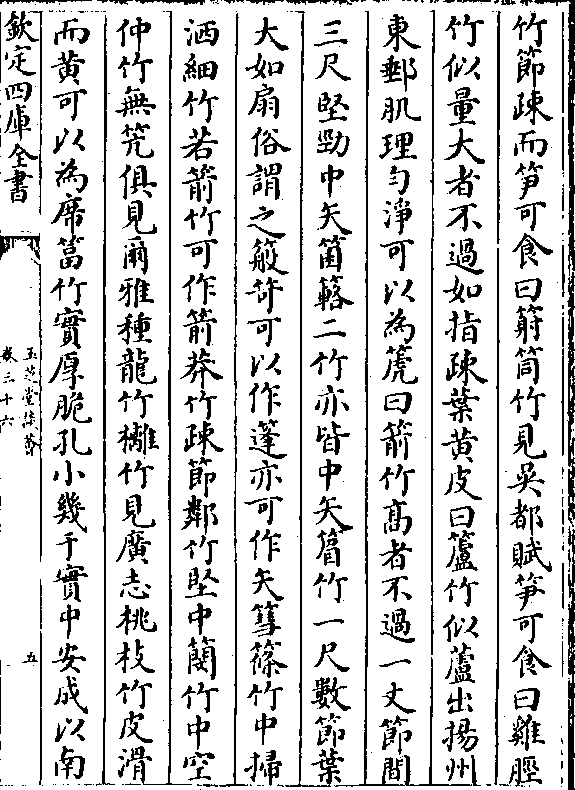 竹節疎而笋可食曰簩筒竹見吳都賦笋可食曰雞脛
竹似量大者不過如指疎葉黄皮曰籚竹似蘆出揚州
東郵肌理勻淨可以為篪曰箭竹高者不過一丈節間
三尺堅勁中矢箘簬二竹亦皆中矢䈽竹一尺數節葉
大如扇俗謂之䉬葉可以作蓬亦可作矢篲篠竹中掃
洒細竹若箭竹可作箭莽竹疎節鄰竹堅中䕞竹中空
仲竹無笐俱見爾雅種龍竹𥴧竹見廣志桃枝竹皮滑
而黄可以為席筩竹實厚脆孔小幾于實中安成以南
欽定四庫全書
玉芝堂談薈
卷三十六
五